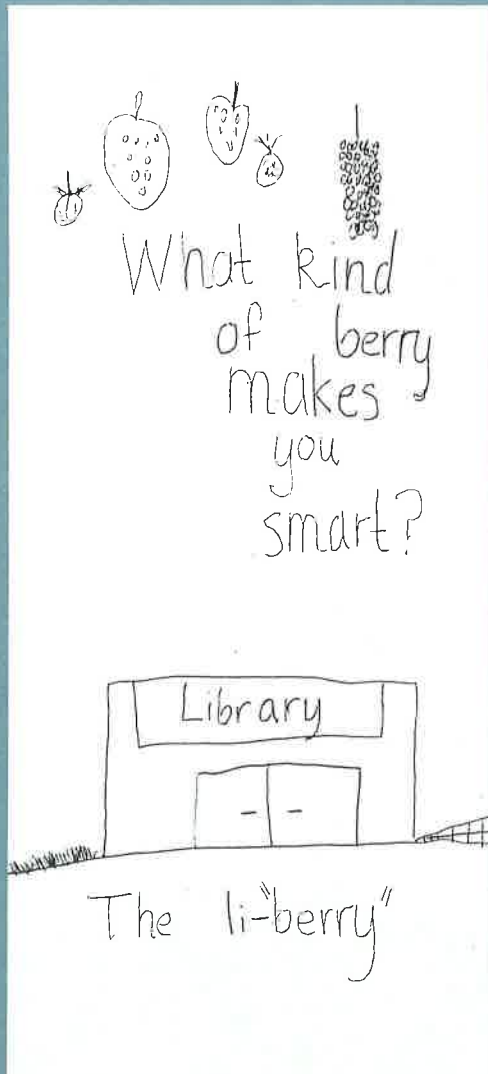 What kind
of berry
makes
you
smart?
Library
The li-"berry"